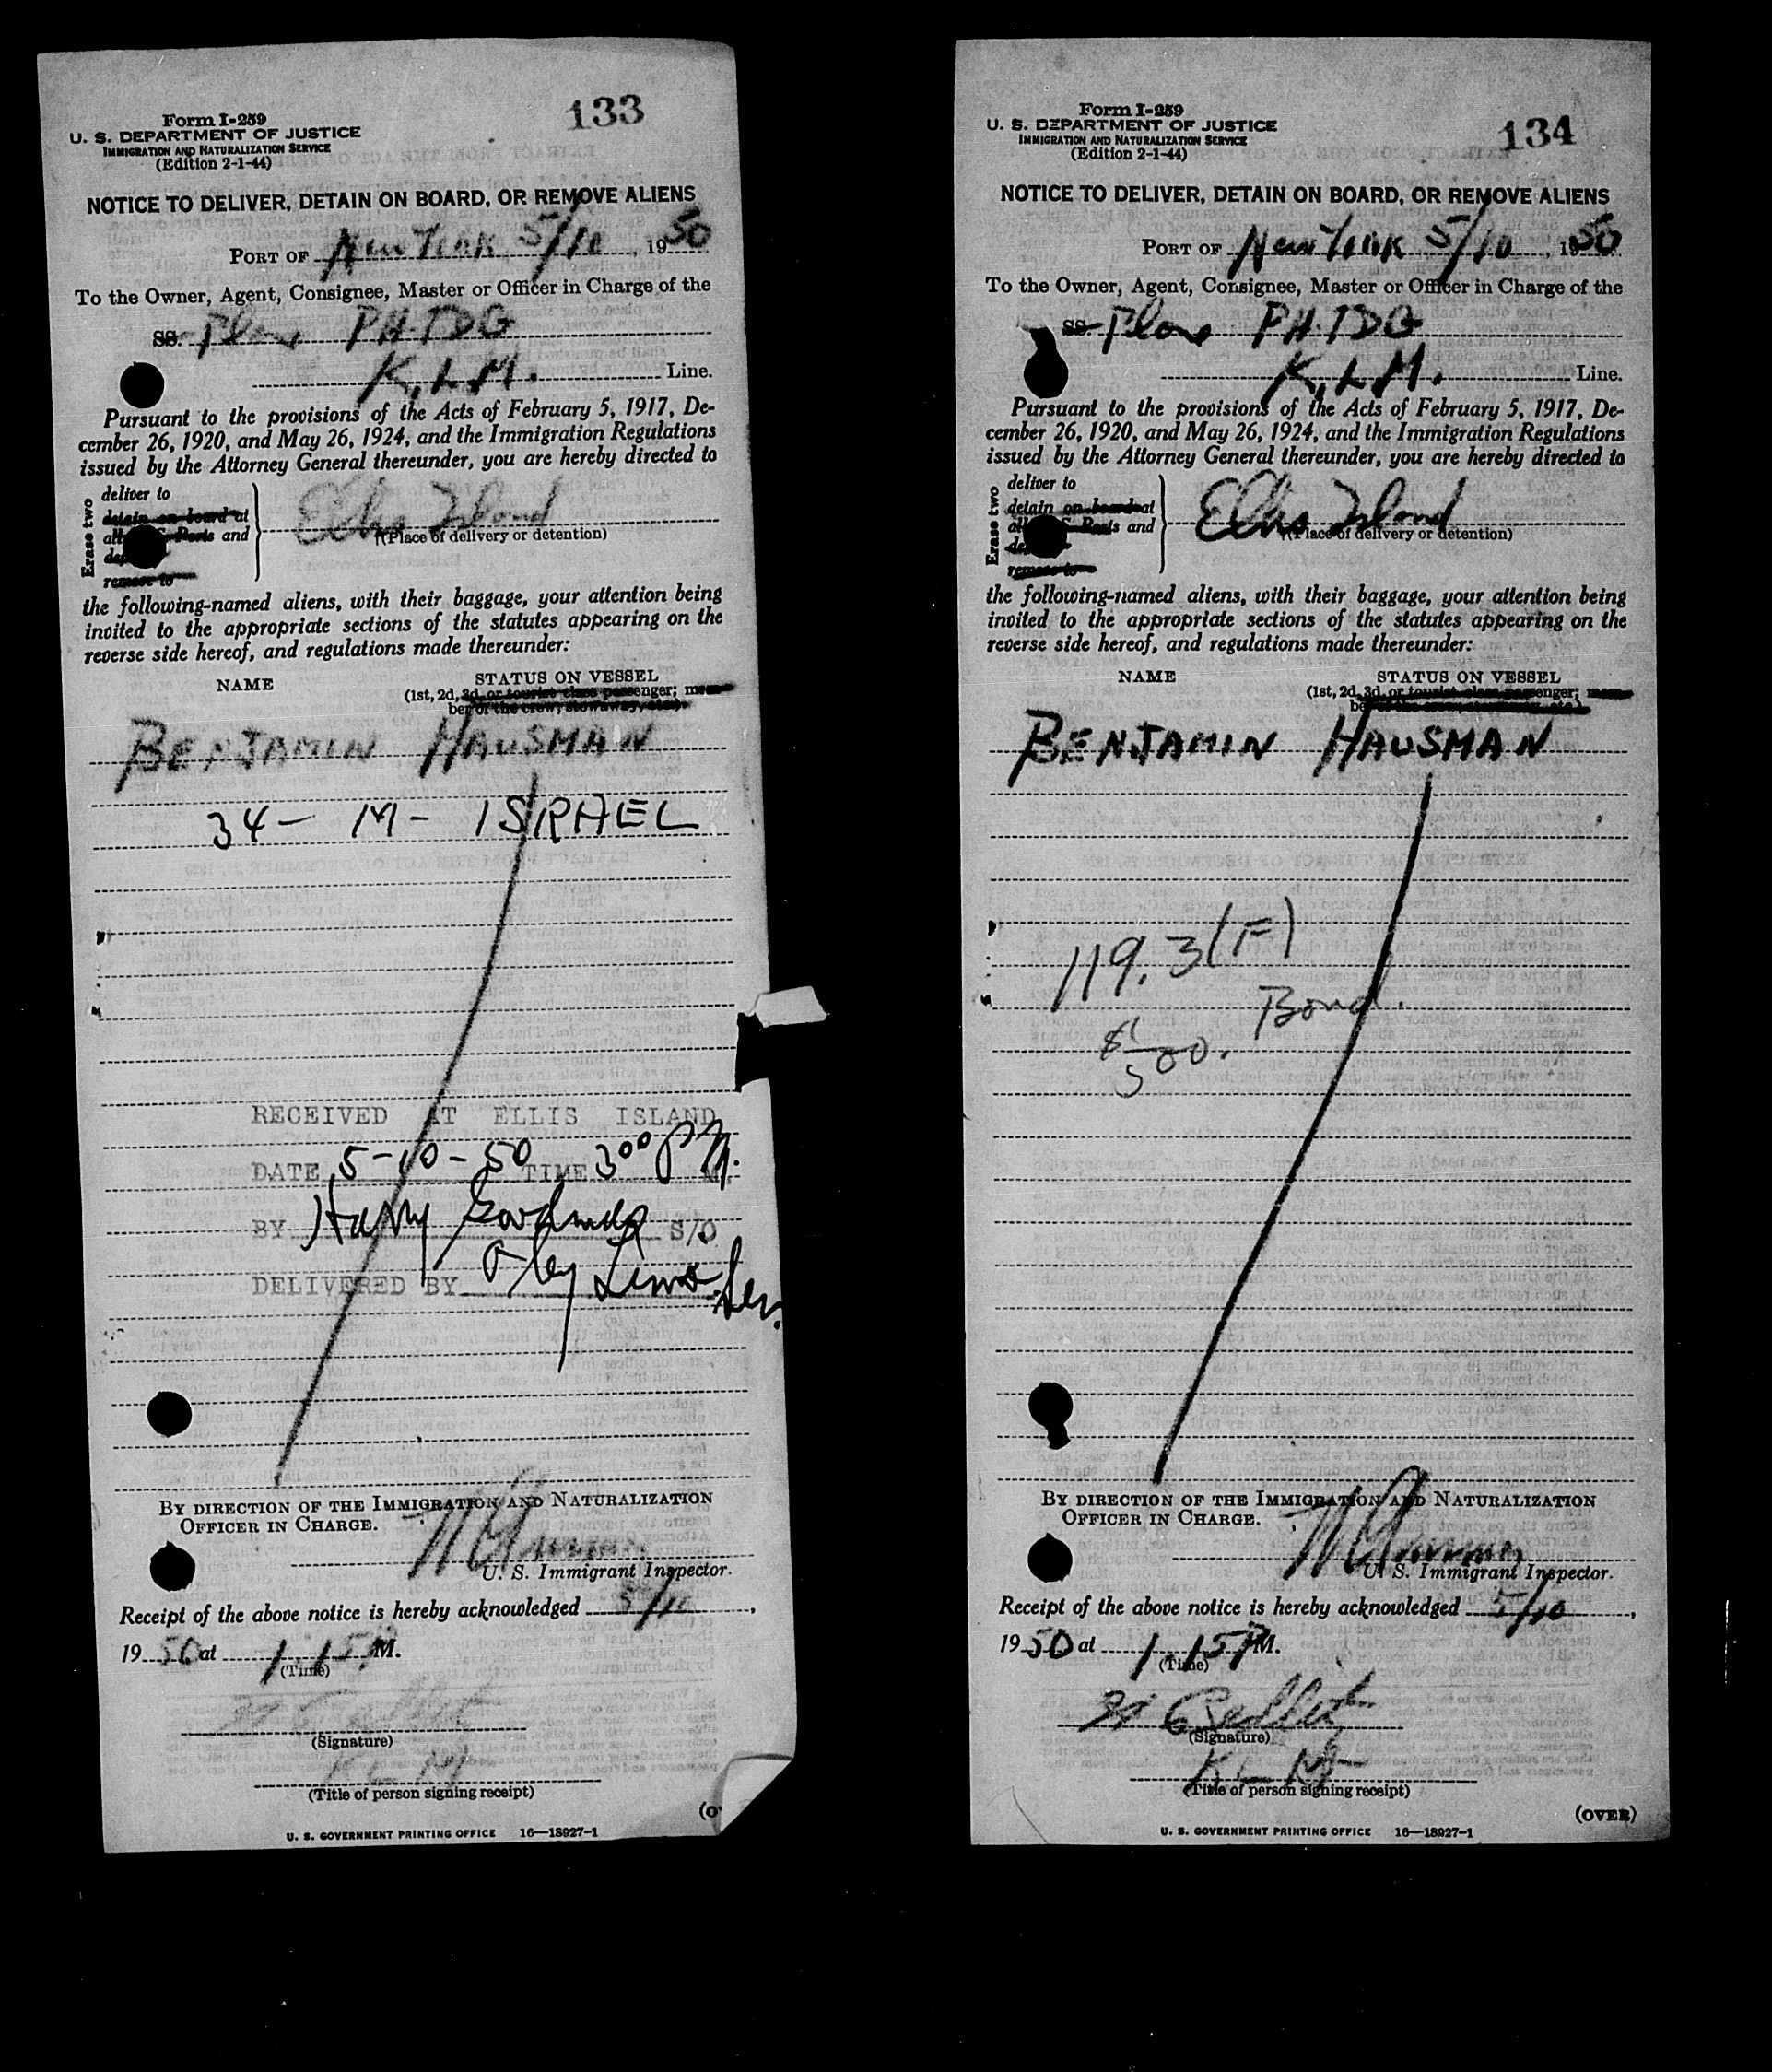 133
Form I-259
U. S. DEPARTMENT OF JUSTICE
IMMIGRATION AND NATURALIZATION SERVICE
(Edition 2-1-44)
NOTICE TO DELIVER, DETAIN ON BOARD, OR REMOVE ALIENS
PORT OF New York 5/10, 1950
To the Owner, Agent, Consignee, Master or Officer in Charge of the
SS. Plane PH.TDG
K.L.M. Line.
Pursuant to the provisions of the Acts of February 5, 1917, De-
cember 26, 1920, and May 26, 1924, and the Immigration Regulations
issued by the Attorney General thereunder, you are hereby directed to
Erase two
deliver to
detain on board at
all Ports and
remove to
Ellis Island
(Place of delivery or detention)
the following-named aliens, with their baggage, your attention being
invited to the appropriate sections of the statutes appearing on the
reverse side hereof, and regulations made thereunder:
NAME STATUS ON VESSEL
(1st, 2d, 3d, or tourist class passenger; mem-
ber of the crew, stowaway, etc.)
BENJAMIN HAUSMAN
34 - M - ISRAEL
RECEIVED AT ELLIS ISLAND
DATE 5-10-50 TIME 3 00 P M.
BY Harry S/O
DELIVERED BY
BY DIRECTION OF THE IMMIGRATION AND NATURALIZATION
OFFICER IN CHARGE.
U. S. Immigrant Inspector.
Receipt of the above notice is hereby acknowledged 5/10,
1950 at 1 15 P M.
(Time)
(Signature)
K L M
(Title of person signing receipt)
(O
U. S. GOVERNMENT PRINTING OFFICE 16—18927-1
134
Form I-259
U. S. DEPARTMENT OF JUSTICE
IMMIGRATION AND NATURALIZATION SERVICE
(Edition 2-1-44)
NOTICE TO DELIVER, DETAIN ON BOARD, OR REMOVE ALIENS
PORT OF New York 5/10, 1950
To the Owner, Agent, Consignee, Master or Officer in Charge of the
SS. Plane PH.TDG
K.L.M. Line.
Pursuant to the provisions of the Acts of February 5, 1917, De-
cember 26, 1920, and May 26, 1924, and the Immigration Regulations
issued by the Attorney General thereunder, you are hereby directed to
Erase two
deliver to
detain on board at
all Ports and
remove to
Ellis Island
(Place of delivery or detention)
the following-named aliens, with their baggage, your attention being
invited to the appropriate sections of the statutes appearing on the
reverse side hereof, and regulations made thereunder:
NAME STATUS ON VESSEL
(1st, 2d, 3d, or tourist class passenger; mem-
ber of the crew, stowaway, etc.)
BENJAMIN HAUSMAN
119.3(F)
Bond.
$500.
BY DIRECTION OF THE IMMIGRATION AND NATURALIZATION
OFFICER IN CHARGE.
U. S. Immigrant Inspector.
Receipt of the above notice is hereby acknowledged 5/10,
1950 at 1 15 P M.
(Time)
(Signature)
K L M
(Title of person signing receipt)
(OVER)
U. S. GOVERNMENT PRINTING OFFICE 16—18927-1